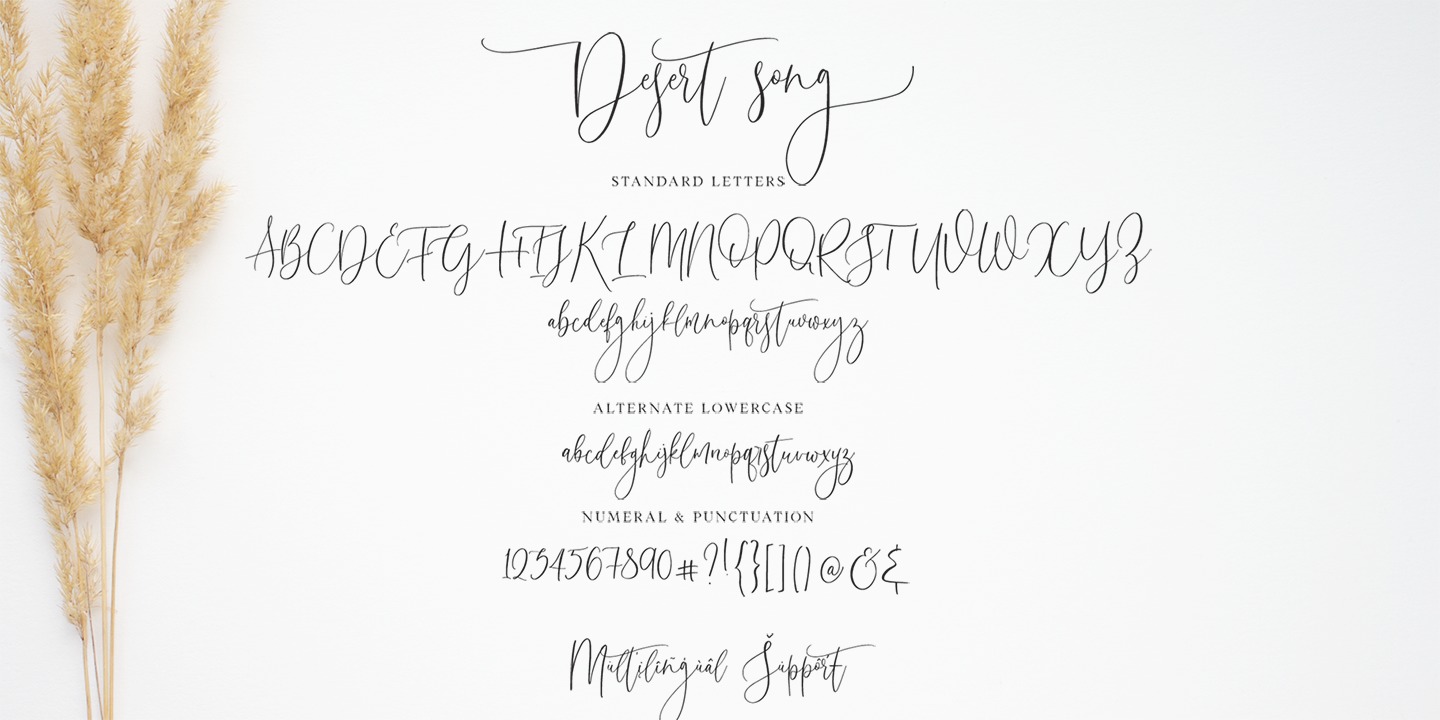 Desert song
STANDARD LETTERS
ABCDEFGHIJKLMNOPQRSTUVWXYZ
abcdefghijklmnopqrstuvwxyz
ALTERNATE LOWERCASE
abcdefghijklmnopqrstuvwxyz
NUMERAL & PUNCTUATION
1234567890#?!{}[]()@&&